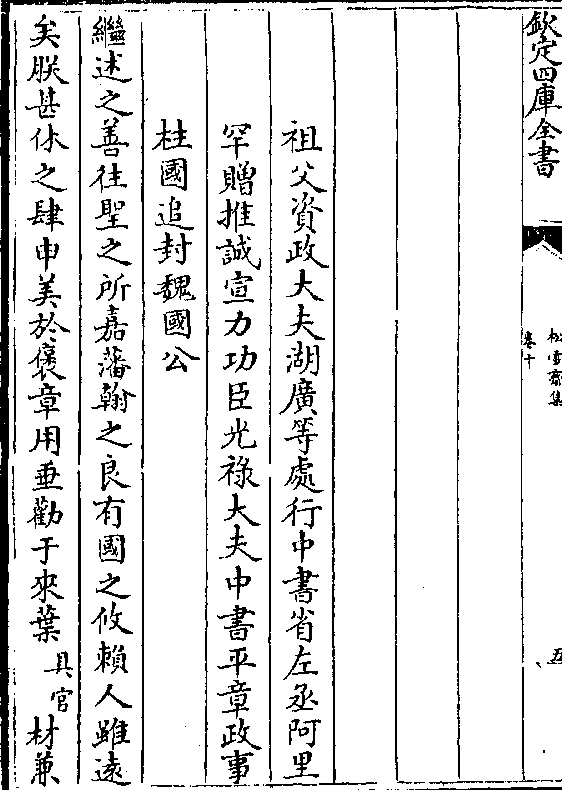 欽定四庫全書
松雪齋集
卷十
五
祖父資政大夫湖廣等處行中書省左丞阿里
罕贈推誠宣力功臣光祿大夫中書平章政事
柱國追封魏國公
繼述之善往聖之所嘉藩翰之良有國之攸賴人雖遠
矣朕甚休之肆申美於褒章用垂勸于來葉具官材兼